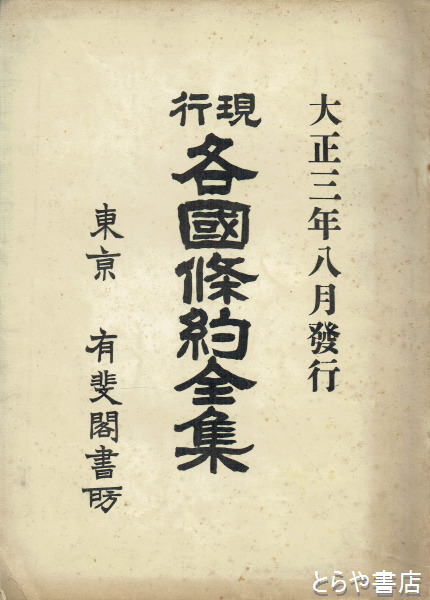 大正三年八月發行
現行
各國條約全集
東京 有斐閣書房
とらや書店